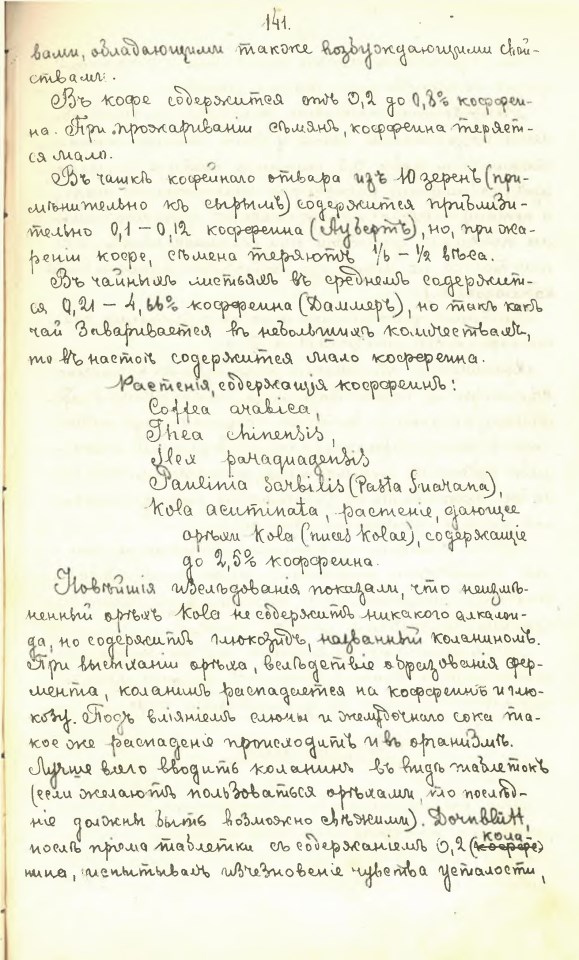 141.
вами, обладающими также возбуждающими свой-
ствами.
Въ кофе содержится отъ 0,2 до 0,8% коффеи-
на. При прожариваніи сѣмянъ, коффеина теряет-
ся мало.
Въ чашкѣ кофейнаго отвара изъ 10 зеренъ (при-
мѣнительно къ сырымъ) содержится приблизи-
тельно 0,1 – 0,12 коффеина (Аубертъ), но, при жа-
реніи кофе, сѣмена теряютъ 1/6 – 1/2 вѣса.
Въ чайныхъ листьяхъ въ среднемъ содержит-
ся 0,21 – 4,66% коффеина (Даммеръ), но такъ какъ
чай заваривается въ небольшихъ количествахъ,
то въ настоѣ содержится мало коффеина.
Растенія, содержащія коффеинъ:
Coffea arabica,
Thea chinensis,
Ilex paraquagensis
Paulinia sorbilis (Pasta Guarana),
Kola acuminata, растеніе, дающее
орѣхи Kola (nuces Kolae), содержащіе
до 2,5% коффеина.
Новѣйшія изслѣдованія показали, что неизмѣ-
ненный орѣхъ Kola не содержитъ никакого алкалои-
да, но содержитъ глюкозидъ, названный коланиномъ.
При высыханіи орѣха, вслѣдствіе образованія фер-
мента, коланинъ распадается на коффеинъ и глю-
козу. Подъ вліяніемъ слюны и желудочнаго сока та-
кое же распаденіе происходитъ и въ организмѣ.
Лучше всего вводить коланинъ въ видѣ таблетокъ
(если желаютъ пользоваться орѣхами, то послѣд-
ніе должны быть возможно свѣжими). Dornblüth,
послѣ пріема таблетки съ содержаніемъ 0,2 (кола-
нина, испытывалъ изчезновеніе чувства усталости,